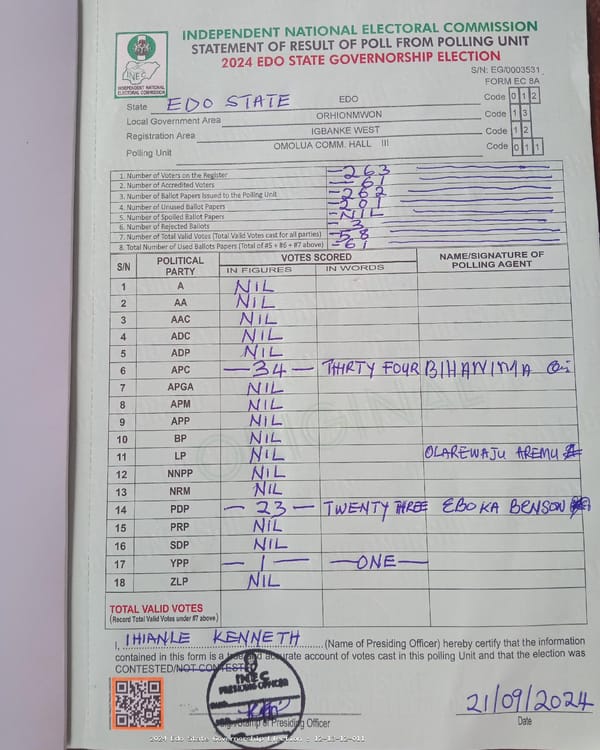 INDEPENDENT NATIONAL ELECTORAL COMMISSION
STATEMENT OF RESULT OF POLL FROM POLLING UNIT
2024 EDO STATE GOVERNORSHIP ELECTION
S/N: EG/0003531
FORM EC 8A
INEC
INDEPENDENT NATIONAL ELECTORAL COMMISSION
State EDO STATE EDO Code 0 1 2
Local Government Area ORHIONMWON Code 1 3
Registration Area IGBANKE WEST Code 1 2
Polling Unit OMOLUA COMM. HALL III Code 0 1 1
1. Number of Voters on the Register -263
2. Number of Accredited Voters -61
3. Number of Ballot Papers Issued to the Polling Unit -262
4. Number of Unused Ballot Papers -201
5. Number of Spoiled Ballot Papers -NIL
6. Number of Rejected Ballots -3
7. Number of Total Valid Votes (Total Valid Votes cast for all parties) -58
8. Total Number of Used Ballots Papers (Total of #5 + #6 + #7 above) -61
S/N POLITICAL PARTY VOTES SCORED NAME/SIGNATURE OF POLLING AGENT
IN FIGURES IN WORDS
1 A NIL
2 AA NIL
3 AAC NIL
4 ADC NIL
5 ADP NIL
6 APC -34- THIRTY FOUR BIHANIMA
7 APGA NIL
8 APM NIL
9 APP NIL
10 BP NIL
11 LP NIL OLAREWAJU AREMU
12 NNPP NIL
13 NRM NIL
14 PDP -23- TWENTY THREE EBOKA BENSON
15 PRP NIL
16 SDP NIL
17 YPP -1- -ONE-
18 ZLP NIL
ORIGINAL
TOTAL VALID VOTES
(Record Total Valid Votes under #7 above)
I, IHIANLE KENNETH (Name of Presiding Officer) hereby certify that the information
contained in this form is a true and accurate account of votes cast in this polling Unit and that the election was
CONTESTED/NOT CONTESTED
INEC
PRESIDING OFFICER
Sign/Stamp of Presiding Officer
21/09/2024
Date
2024 Edo State Governorship Election : 12-13-12-011